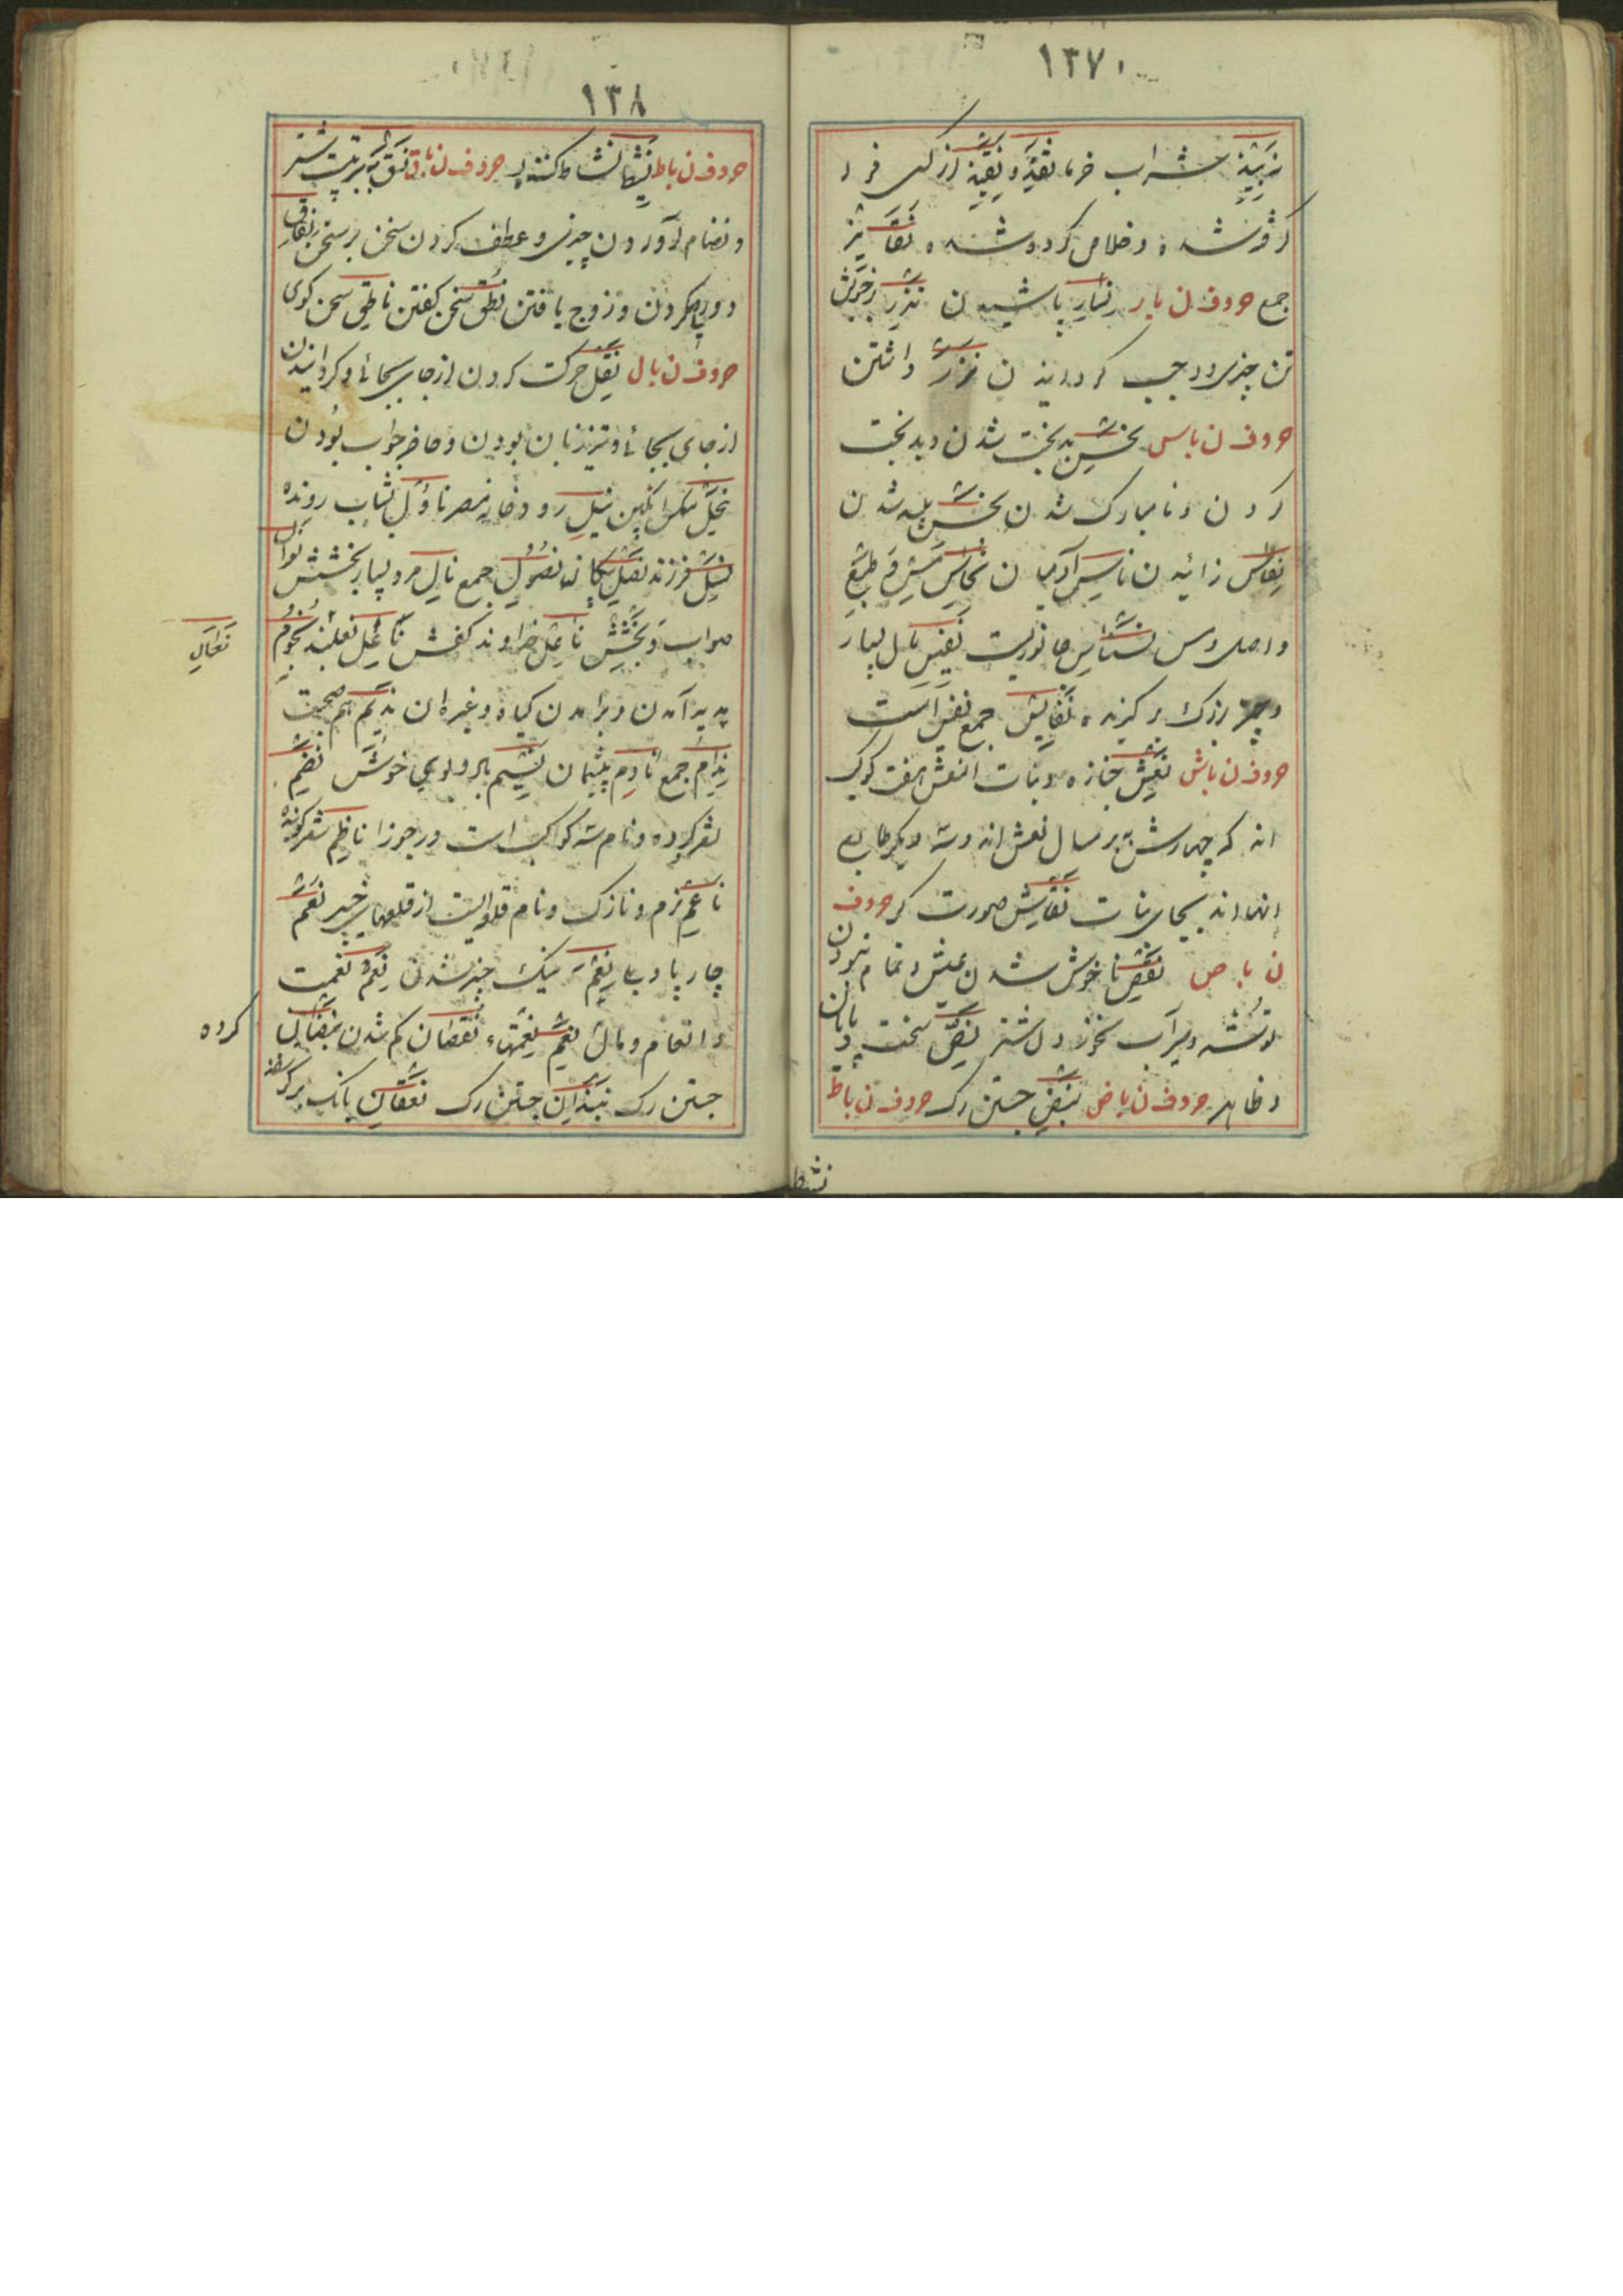 ۱۳۷
نبیذ شراب خرما نقذ و نقیذ از کسی فرا
گرفته شده و خلاص کرده شده نقائذ
جمع حروف ن با ر نثار پاشیدن نذر بر خویش
تن چیزی واجب گردانیدن نزر داشتن
حروف ن با س نحس بدبخت شدن و بدبخت
کردن و نامبارک شدن نجس پلید شدن
نفاس زائیدن ناس آدمیان نحاس مس و طبع
و اصل و مس نسناس جانوریست نفیس مال بسیار
و چیز بزرگ برگزیده نفایس جمع نفیس است
حروف ن با ش نعش جنازه و بنات النعش هفت کوکب
اند که چهارش بر مسال نعش اند و سه دیگر
انها اند بجای بنات نقاش صورت گر حروف
ن با ص نغص ناخوش شدن عیش و تمام نبودن
و سیرآب نخوردن شتر نص سخت
و ظاهر حروف ن با ض نبض جستن رگ حروف ن با ط
نشط
۱۳۸
حروف ن با ط نشاط کننده حروف ن با ق نسق به ترتیب
و نظام آوردن چیزی و عطف کردن سخن بر سخن نفاق
دورویی کردن و زوج یافتن نطق سخن گفتن ناطق سخن گوی
حروف ن با ل نقل حرکت کردن از جای بجائ و گردانیدن
از جای بجائ و تیز زبان بودن و حاضر جواب بودن
نحل مگس انگبین نیل رودخانه مصر ناؤل شتاب رونده
نسل فرزند نصل پیکان نصول جمع نایل مرد بسیار بخشش نوال
صواب و بخشش ناعل خداوند کفش ناعل نعلبند نجوم
نعال
پدید آمدن و برآمدن گیاه و غیر آن ندیم هم صحبت
ندام جمع نادم پشیمان نسیم باد و بوی خوش نظم
شعر کرده و نام سه کوکب است در جوزا ناظم شعر گوینده
ناعم نرم و نازک و نام قلعه ایست از قلعهای خیبر نعم
چارپا و بلی نعم نیک چیز شدن نعم نعمت
و انعام و مال نعم نعمتهاء نقصان کم شدن
کرده
جستن رگ نبضان جستن رگ